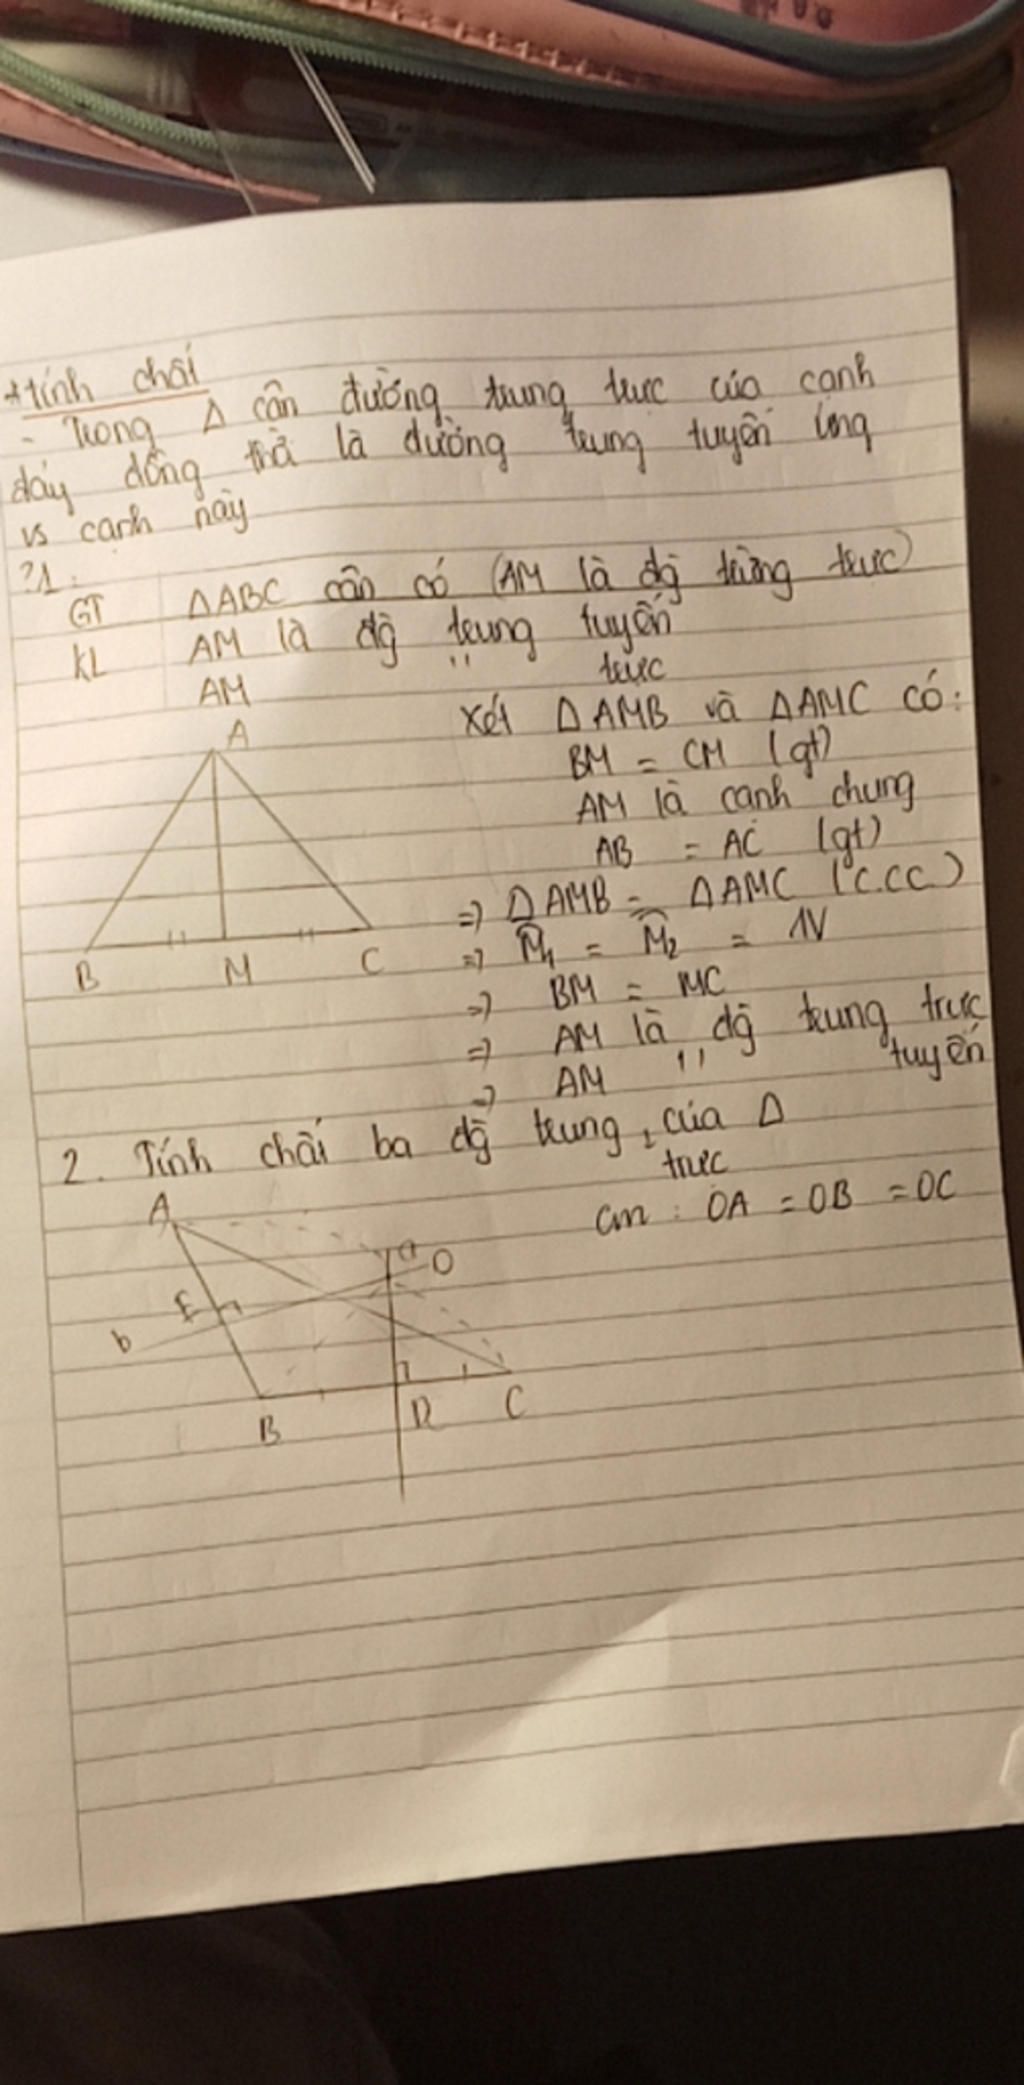 * tính chất
- Trong Δ cân đường trung trực của cạnh
đáy đồng thời là đường trung tuyến ứng
vs cạnh này
?1.
GT ΔABC cân có (AM là đg trung trực)
KL AM là đg trung tuyến
AM " trực
A
B M C
Xét ΔAMB và ΔAMC có:
BM = CM (gt)
AM là cạnh chung
AB = AC (gt)
=> ΔAMB = ΔAMC (c.c.c)
=> M̂1 = M̂2 = 1V
=> BM = MC
=> AM là đg trung trực
=> AM " tuyến
2. Tính chất ba đg trung trực của Δ
cm: OA = OB = OC
A
a O
E
b
B D C